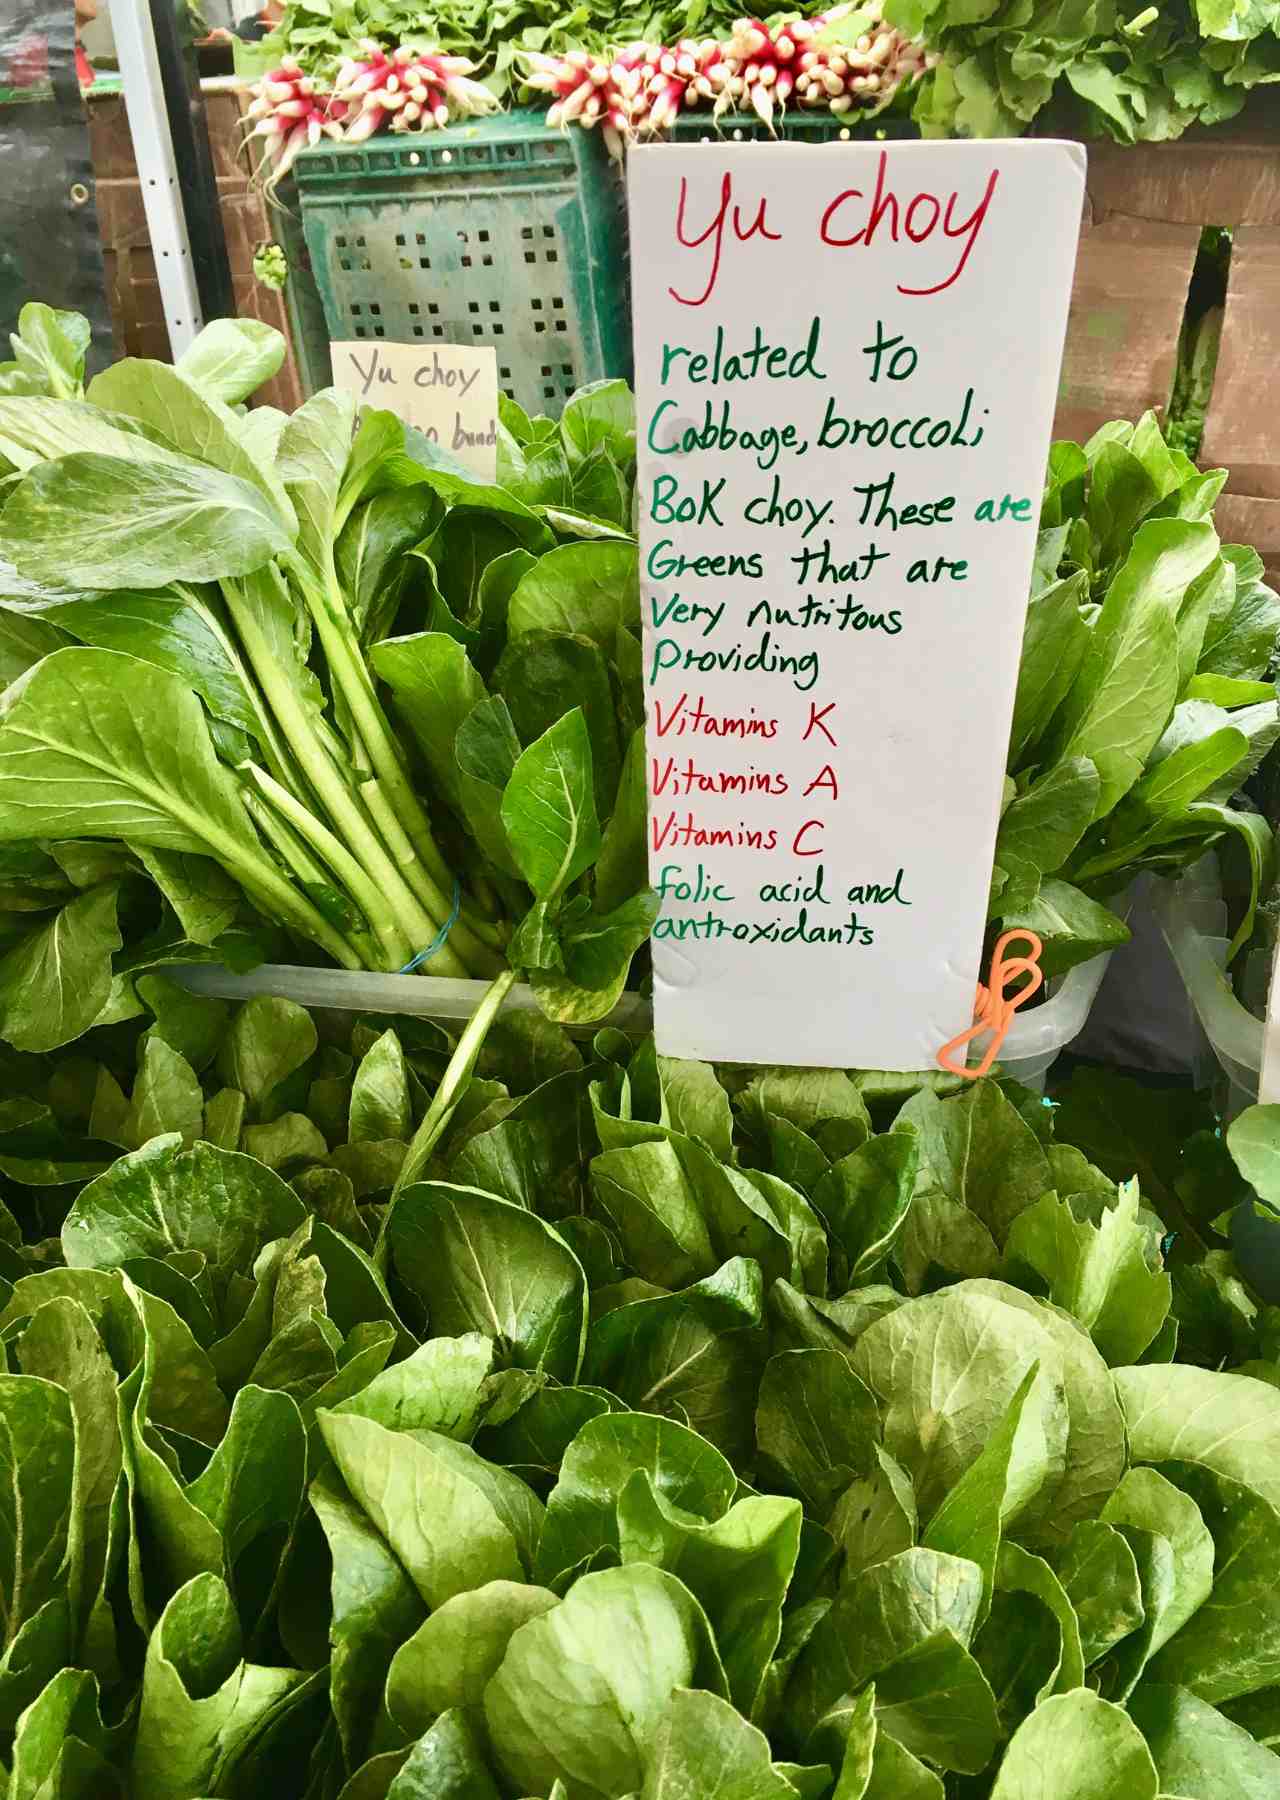 Yu choy
related to
Cabbage, broccoli
Bok choy. These are
Greens that are
Very nutritous
Providing
Vitamins K
Vitamins A
Vitamins C
folic acid and
antroxidants
Yu choy